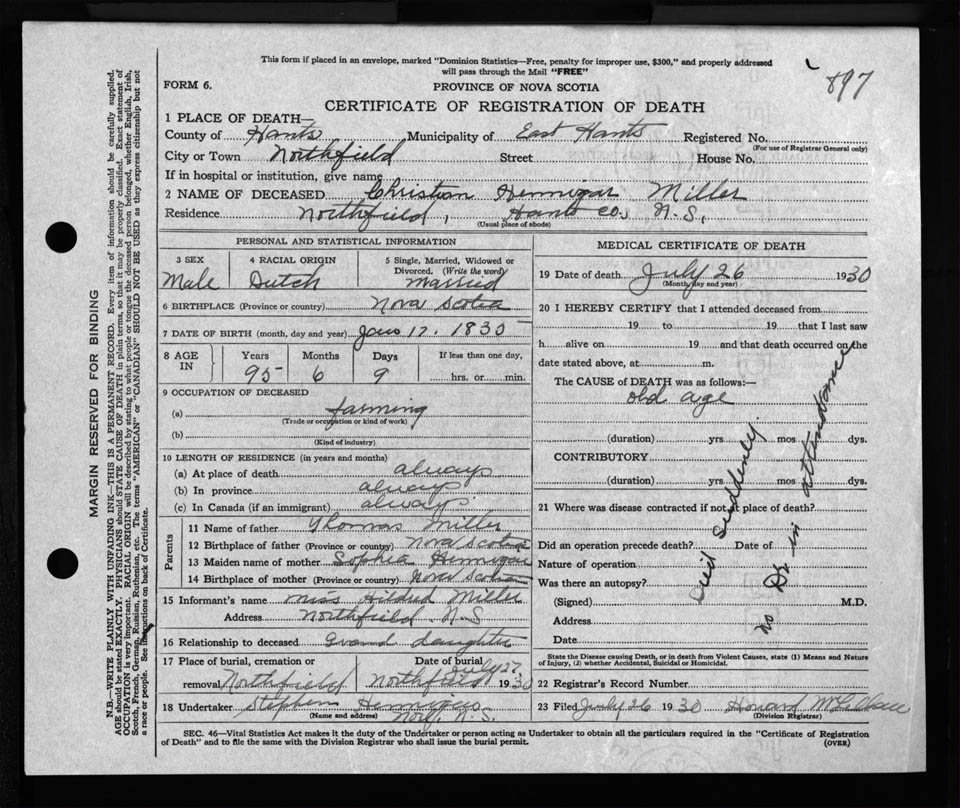 This form if placed in an envelope, marked "Dominion Statistics—Free, penalty for improper use, $300," and properly addressed
will pass through the Mail "FREE"
897
FORM 6.
PROVINCE OF NOVA SCOTIA
CERTIFICATE OF REGISTRATION OF DEATH
1 PLACE OF DEATH—
County of Hants Municipality of East Hants Registered No.
(For use of Registrar General only)
City or Town Northfield Street House No.
If in hospital or institution, give name
2 NAME OF DECEASED Christian Hennigar Miller
Residence Northfield, Hants Co. N.S.
(Usual place of abode)
PERSONAL AND STATISTICAL INFORMATION
3 SEX 4 RACIAL ORIGIN 5 Single, Married, Widowed or
Divorced. (Write the word)
Male Dutch married
6 BIRTHPLACE (Province or country) Nova Scotia
7 DATE OF BIRTH (month, day and year) 17. 1835
8 AGE IN Years Months Days If less than one day,
95 6 9 hrs. or min.
9 OCCUPATION OF DECEASED
(a) farming
(Trade or occupation or kind of work)
(b)
(Kind of industry)
10 LENGTH OF RESIDENCE (in years and months)
(a) At place of death always
(b) In province always
(c) In Canada (if an immigrant) always
Parents
11 Name of father Thomas Miller
12 Birthplace of father (Province or country) Nova Scotia
13 Maiden name of mother Sophia Hennigar
14 Birthplace of mother (Province or country) Nova Scotia
15 Informant's name Miss Hildred Miller
Address Northfield. N.S
16 Relationship to deceased Grand daughter
17 Place of burial, cremation or Date of burial
July 27
removal Northfield Northfield 1930
18 Undertaker Stephen
(Name and address) N.S.
MEDICAL CERTIFICATE OF DEATH
19 Date of death July 26 1930
(Month, day and year)
20 I HEREBY CERTIFY that I attended deceased from
19 to 19 that I last saw
h alive on 19 and that death occurred on the
date stated above, at m.
The CAUSE OF DEATH was as follows:—
old age
(duration) yrs. mos. dys.
CONTRIBUTORY
(duration) yrs. mos. dys.
21 Where was disease contracted if not at place of death?
Did an operation precede death? Date of
Nature of operation
Was there an autopsy?
(Signed) M.D.
Address
Date
Died Suddenly
no Dr in attendance
State the Disease causing Death, or in death from Violent Causes, state (1) Means and
Nature of Injury, (2) whether Accidental, Suicidal or Homicidal.
22 Registrar's Record Number
23 Filed July 26 1930 Howard
(Division Registrar)
SEC. 46—Vital Statistics Act makes it the duty of the Undertaker or person acting as Undertaker to obtain all the particulars required in the "Certificate of Registration
of Death" and to file the same with the Division Registrar who shall issue the burial permit. (OVER)
MARGIN RESERVED FOR BINDING
N.B.—WRITE PLAINLY WITH UNFADING INK—THIS IS A PERMANENT RECORD. Every item of information should be carefully supplied.
AGE should be stated EXACTLY. PHYSICIANS should STATE CAUSE OF DEATH in plain terms, so that it may be properly classified. Exact statement of
OCCUPATION is very important. RACIAL ORIGIN will be described by stating to what people or tongue the deceased person belonged, whether English, Irish,
Scotch, French, German, Russian, Ruthenian, etc. The terms "AMERICAN" or "CANADIAN" SHOULD NOT BE USED as they express citizenship but not
a race or people. See instructions on back of Certificate.